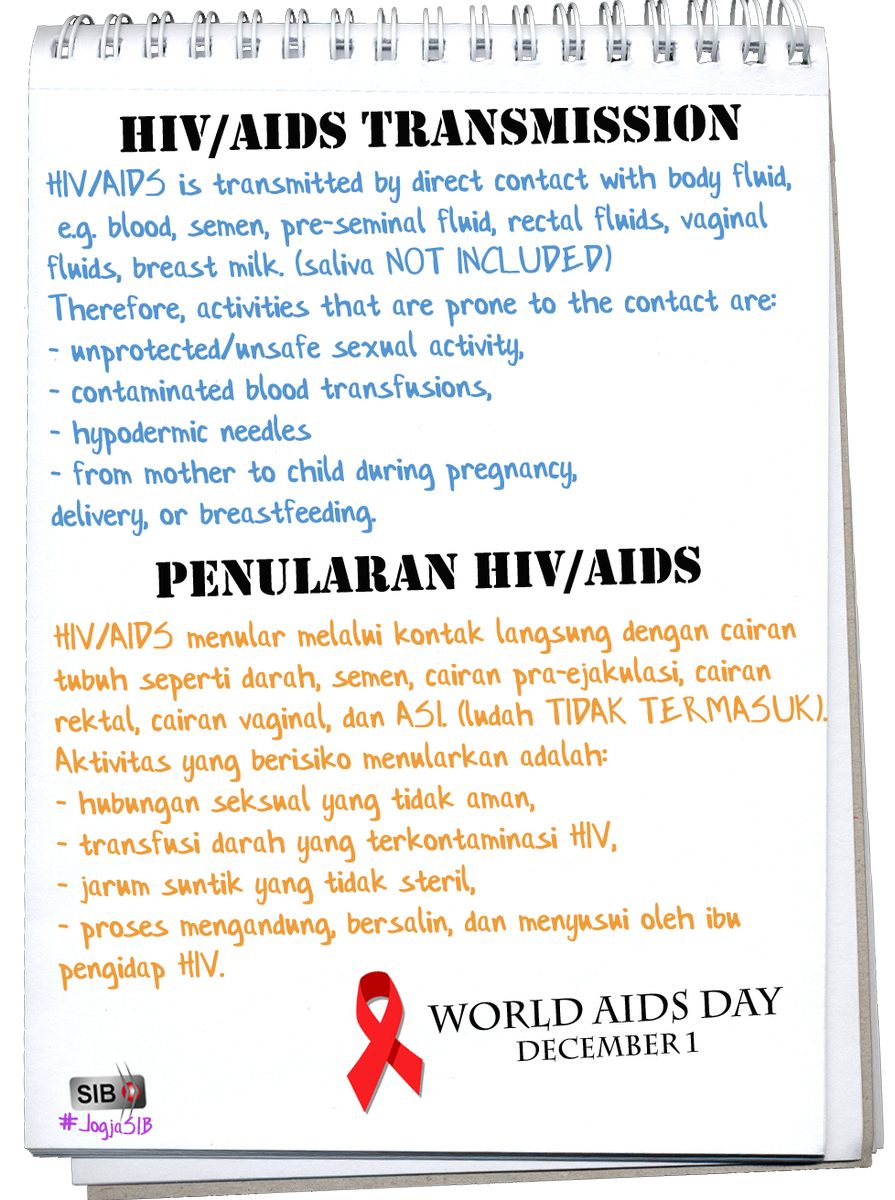 HIV/AIDS TRANSMISSION
HIV/AIDS is transmitted by direct contact with body fluid,
e.g. blood, semen, pre-seminal fluid, rectal fluids, vaginal
fluids, breast milk. (saliva NOT INCLUDED)
Therefore, activities that are prone to the contact are:
- unprotected/unsafe sexual activity,
- contaminated blood transfusions,
- hypodermic needles
- from mother to child during pregnancy,
delivery, or breastfeeding.
PENULARAN HIV/AIDS
HIV/AIDS menular melalui kontak langsung dengan cairan
tubuh seperti darah, semen, cairan pra-ejakulasi, cairan
rektal, cairan vaginal, dan ASI. (ludah TIDAK TERMASUK).
Aktivitas yang berisiko menularkan adalah:
- hubungan seksual yang tidak aman,
- transfusi darah yang terkontaminasi HIV,
- jarum suntik yang tidak steril,
- proses mengandung, bersalin, dan menyusui oleh ibu
pengidap HIV.
WORLD AIDS DAY
DECEMBER 1
SIB
#JogjaSIB